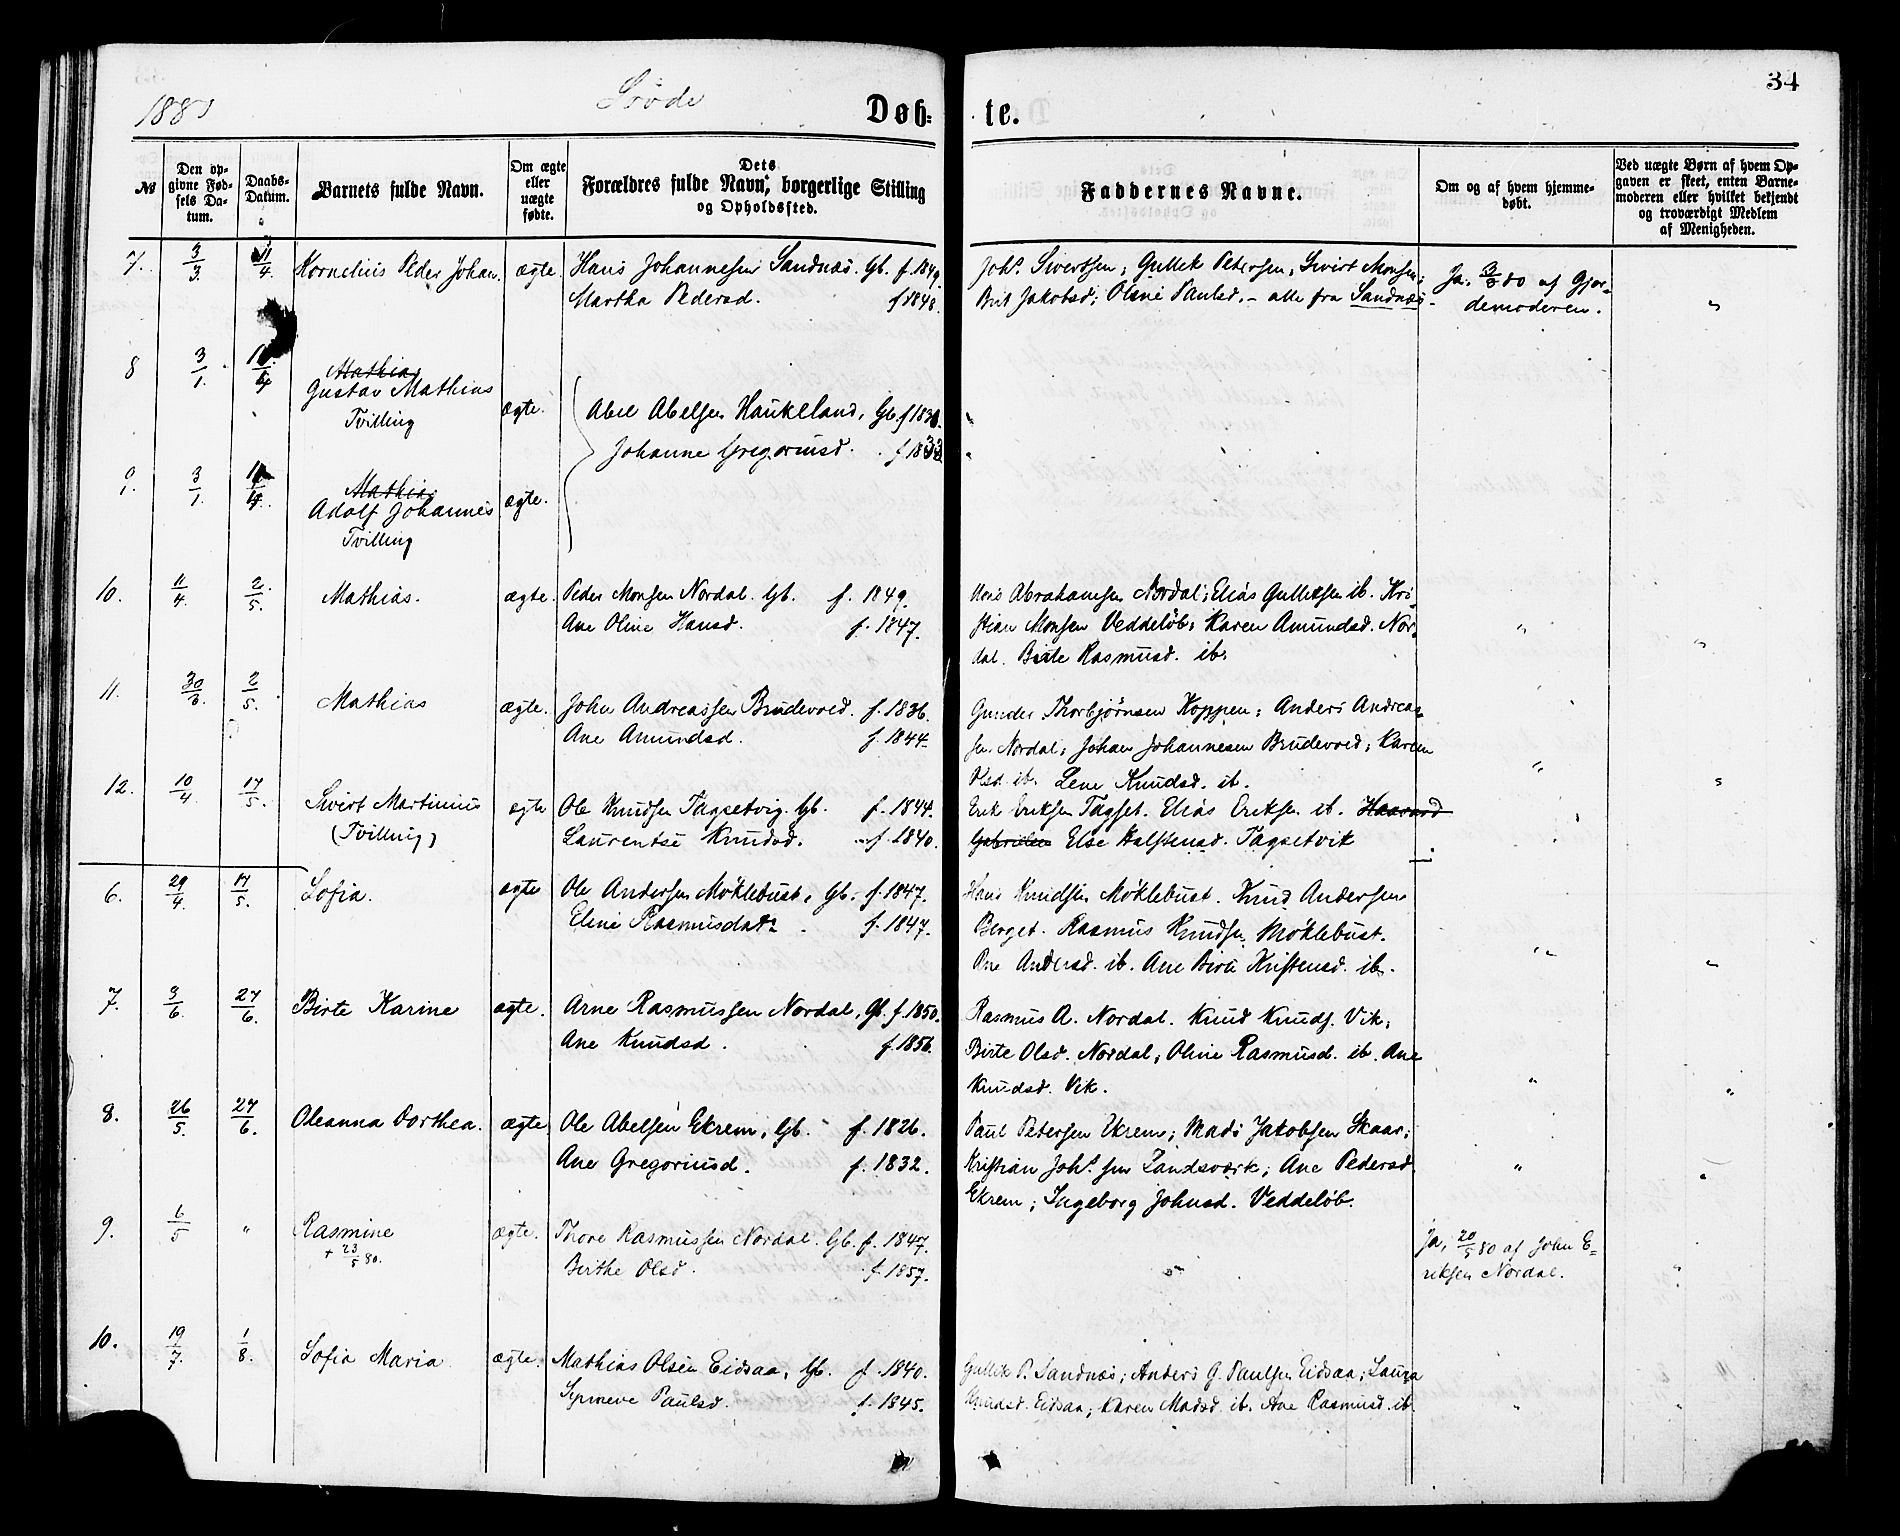 1880
Døb-
te.
34
№
Den op-
givne Fød-
sels Da-
tum.
Daabs-
Datum.
Barnets fulde Navn.
Om ægte
eller
uægte
fødte.
Dets
Forældres fulde Navn, borgerlige Stilling
og Opholdssted.
Faddernes Navne.
Om og af hvem hjemme-
døbt.
Ved uægte Børn af hvem Op-
gaven er skeet, enten Barne-
moderen eller hvilket bekjendt
og troværdigt Medlem
af Menigheden.
7. 3/3 11/4. Kornelius Peder Johan. ægte. Hans Johannesen Sandnæs. Gb. f. 1849.
Martha Pedersd. f 1848.
Johs. Sivertsen; Gullek Petersen; Sivert Monsen;
Brit Jakobsd; Oline Paulsd. - alle fra Sandnæs.
Ja. 3/3 80 af Gjor-
demoderen. "
8 3/1. 11/4 Mathias
Gustav Mathias
Tvilling
ægte. Abel Abelsen Haukeland, Gb. f 1830.
Johanne Gregoriusd. f. 1833
9. 3/1. 11/4. Mathias
Adolf Johannes
Tvilling
ægte.
10. 11/4. 2/5. Mathias. ægte. Peder Monsen Nordal. Gb. f. 1849.
Ane Oline Hansd. f. 1847.
Hans Abrahamsen Nordal; Elias Gulleksen ib. Kri-
stian Monsen Veddeløb; Karen Amundsd. Nor-
dal. Birte Rasmusd. ib. " "
11. 30/3. 2/5. Mathias ægte. John Andreassen Brudevold. f. 1836.
Ane Amundsd. f. 1844.
Gunder Thorbjørnsen Koppen; Anders Andreas-
sen Nordal; Johan Johannesen Brudevold; Karen
Olsd. ib. Lene Knudsd. ib. " "
12. 10/4. 17/5. Sivert Martinius
(Tvilling)
ægte Ole Knudsen Tagsetvig. Gb. f. 1844.
Laurentse Knudsd. f. 1840.
Erik Eriksen Tagset. Elias Eriksen ib. Haavard
Gabrielsen Else Halstensd. Tagsetvik
6. 29/4. 17/5. Sofia. ægte Ole Andersen Møklebust, Gb. f. 1847.
Eline Rasmusdatr. f. 1847.
Hans Knudsen Møklebust. Knud Andersen
Berget. Rasmus Knudsen Møklebust.
Ane Andersd. ib. Ane Birte Kristensd. ib. " "
7. 3/6. 27/6. Birte Karine ægte. Arne Rasmussen Nordal, Gb. f. 1850.
Ane Knudsd. f. 1856.
Rasmus A. Nordal. Knud Knuds. Vik.
Birte Olsd. Nordal, Oline Rasmusd. ib. Ane
Knudsd. Vik. " "
8. 26/5. 27/6. Oleanna Dorthea. ægte. Ole Abelsen Ekrem, Gb. f. 1826.
Ane Gregoriusd. f. 1832.
Paul Petersen Ekrem; Mads Jakobsen Skaar;
Kristian Johs.sen Landsværk; Ane Pedersd
Ekrem; Ingeborg Johnsd. Veddeløb. " "
9. 6/5 " Rasmine
+ 23/5 80.
ægte. Thore Rasmussen Nordal. Gb. f. 1847.
Birthe Olsd. f. 1857.
Ja, 20/5 80 af John E-
riksen Nordal. "
10. 19/7. 1/8. Sofia Maria ægte. Mathias Olsen Eidsaa, Gb. f. 1840.
Synneve Paulsd. f. 1845.
Gullek P. Sandnæs; Anders G. Paulsen Eidsaa; Laura
Knudsd. Eidsaa; Karen Madsd. ib. Ane Rasmusd. ib. " "